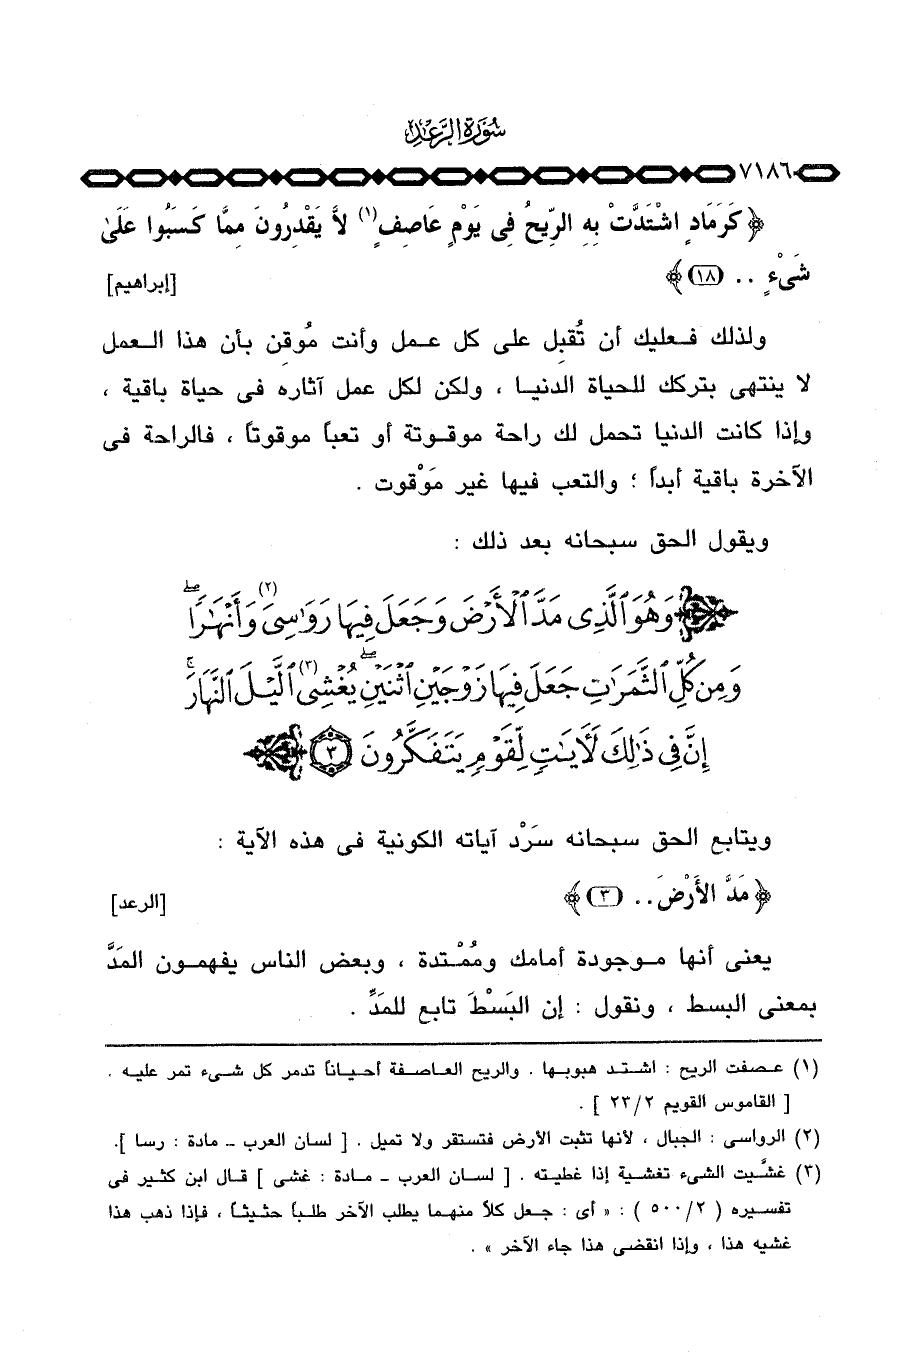 سُورَةُ الرَّعْدِ
٧١٨٦
﴿ كَرَمَادٍ اشْتَدَّتْ بِهِ الرِّيحُ فِى يَوْمٍ عَاصِفٍ(١) لاَّ يَقْدِرُونَ مِمَّا كَسَبُوا عَلَىٰ
شَىْءٍ .. (١٨) ﴾ [إبراهيم]
ولذلك فعليك أن تُقبِل على كل عمل وأنت مُوقِن بأن هذا العمل
لا ينتهى بتركك للحياة الدنيا ، ولكن لكل عمل آثاره فى حياة باقية ،
وإذا كانت الدنيا تحمل لك راحة موقوتة أو تعباً موقوتاً ، فالراحة فى
الآخرة باقية أبداً ؛ والتعب فيها غير مَوْقوت .
ويقول الحق سبحانه بعد ذلك :
وَهُوَ ٱلَّذِى مَدَّ ٱلْأَرْضَ وَجَعَلَ فِيهَا رَوَٰسِىَ(٢) وَأَنْهَٰرًا ۖ
وَمِن كُلِّ ٱلثَّمَرَٰتِ جَعَلَ فِيهَا زَوْجَيْنِ ٱثْنَيْنِ ۖ يُغْشِى(٣) ٱلَّيْلَ ٱلنَّهَارَ ۚ
إِنَّ فِى ذَٰلِكَ لَأَيَٰتٍ لِّقَوْمٍ يَتَفَكَّرُونَ ٣
ويتابع الحق سبحانه سَرْد آياته الكونية فى هذه الآية :
﴿ مَدَّ الأَرْضَ .. (٣) ﴾ [الرعد]
يعنى أنها موجودة أمامك ومُمْتدة ، وبعض الناس يفهمون المَدَّ
بمعنى البسط ، ونقول : إن البَسْطَ تابع للمَدِّ .
(١) عصفت الريح : اشتد هبوبها . والريح العاصفة أحياناً تدمر كل شىء تمر عليه .
[ القاموس القويم ٢٣/٢ ] .
(٢) الرواسى : الجبال ، لأنها تثبت الأرض فتستقر ولا تميل . [ لسان العرب - مادة : رسا ].
(٣) غشَّيت الشىء تغشية إذا غطيته . [ لسان العرب - مادة : غشى ] قال ابن كثير فى
تفسيره ( ٥٠٠/٢ ) : « أى : جعل كلاً منهما يطلب الآخر طلباً حثيثاً ، فإذا ذهب هذا
غشيه هذا ، وإذا انقضى هذا جاء الآخر » .